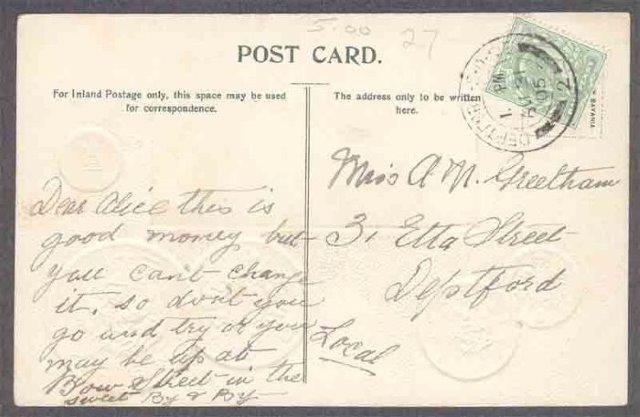 5.00
27
POST CARD.
For Inland Postage only, this space may be used
for correspondence.
The address only to be written
here.
BAVARIA
Dear Alice this is
good money but
you cant change
it, so don't you
go and try or you
may be up at
Bow Street in the
sweet By & By
Miss A M. Greetham
31 Etta Street
Deptford
Local